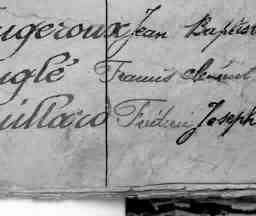 ugeroux Jean Baptis
uglé Francis Clément
uillard Frédéric Joseph